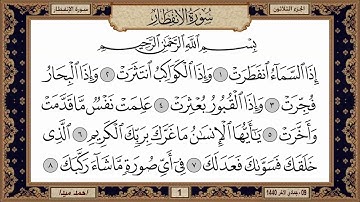 سورة الانفطار
الجزء الثلاثون
سُورَةُ الانفِطَارِ
بِسْمِ اللَّهِ الرَّحْمَٰنِ الرَّحِيمِ
إِذَا السَّمَاءُ انفَطَرَتْ ١ وَإِذَا الْكَوَاكِبُ انتَثَرَتْ ٢ وَإِذَا الْبِحَارُ
فُجِّرَتْ ٣ وَإِذَا الْقُبُورُ بُعْثِرَتْ ٤ عَلِمَتْ نَفْسٌ مَّا قَدَّمَتْ
وَأَخَّرَتْ ٥ يَٰأَيُّهَا الْإِنسَٰنُ مَا غَرَّكَ بِرَبِّكَ الْكَرِيمِ ٦ الَّذِي
خَلَقَكَ فَسَوَّىٰكَ فَعَدَلَكَ ٧ فِي أَيِّ صُورَةٍ مَّا شَاءَ رَكَّبَكَ ٨
1
1440